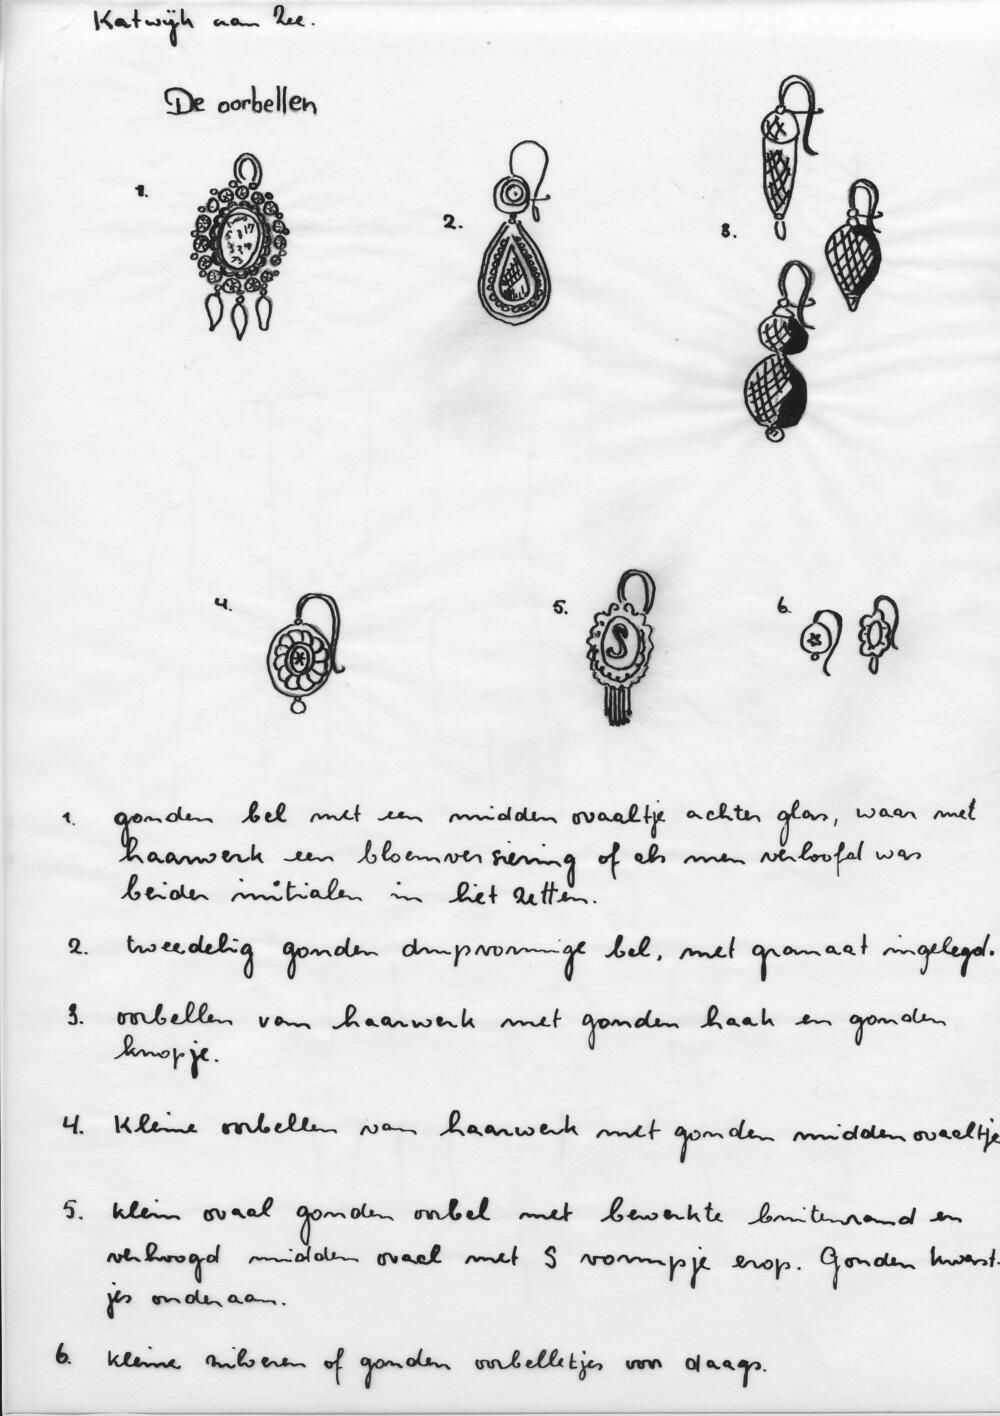 Katwijk aan Zee.
De oorbellen
1.
2.
3.
4.
5.
S
6.
1. gouden bel met een midden ovaaltje achter glas, waar met
haarwerk een bloemversiering of als men verloofd was
beider initialen in liet zetten.
2. tweedelig gouden drupvormige bel, met granaat ingelegd.
3. oorbellen van haarwerk met gouden haak en gouden
knopje.
4. Kleine oorbellen van haarwerk met gouden midden ovaaltje
5. klein ovaal gouden oorbel met bewerkte buitenrand en
verhoogd midden ovaal met S vormpje erop. Gouden kwast-
jes onderaan.
6. kleine zilveren of gouden oorbelletjes voor daags.